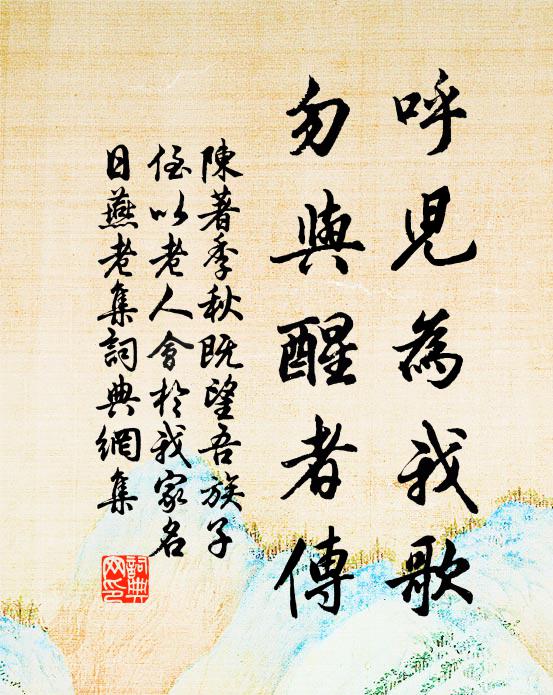 呼兒為我歌
勿與醒者傳
陳著季秋既望吾族子
侄以老人會於我家名
日燕老集詞典網集
詞典網印